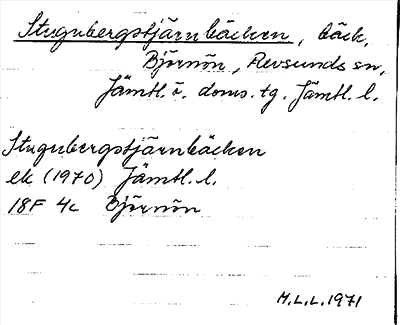 Stugubergstjärnbäcken, bäck,
Björnön, Revsunds sn,
Jämtl. ö. doms. tg. Jämtl. l.
Stugubergstjärnbäcken
ek (1970) Jämtl. l.
18F 4c Björnön
M.L.L. 1971